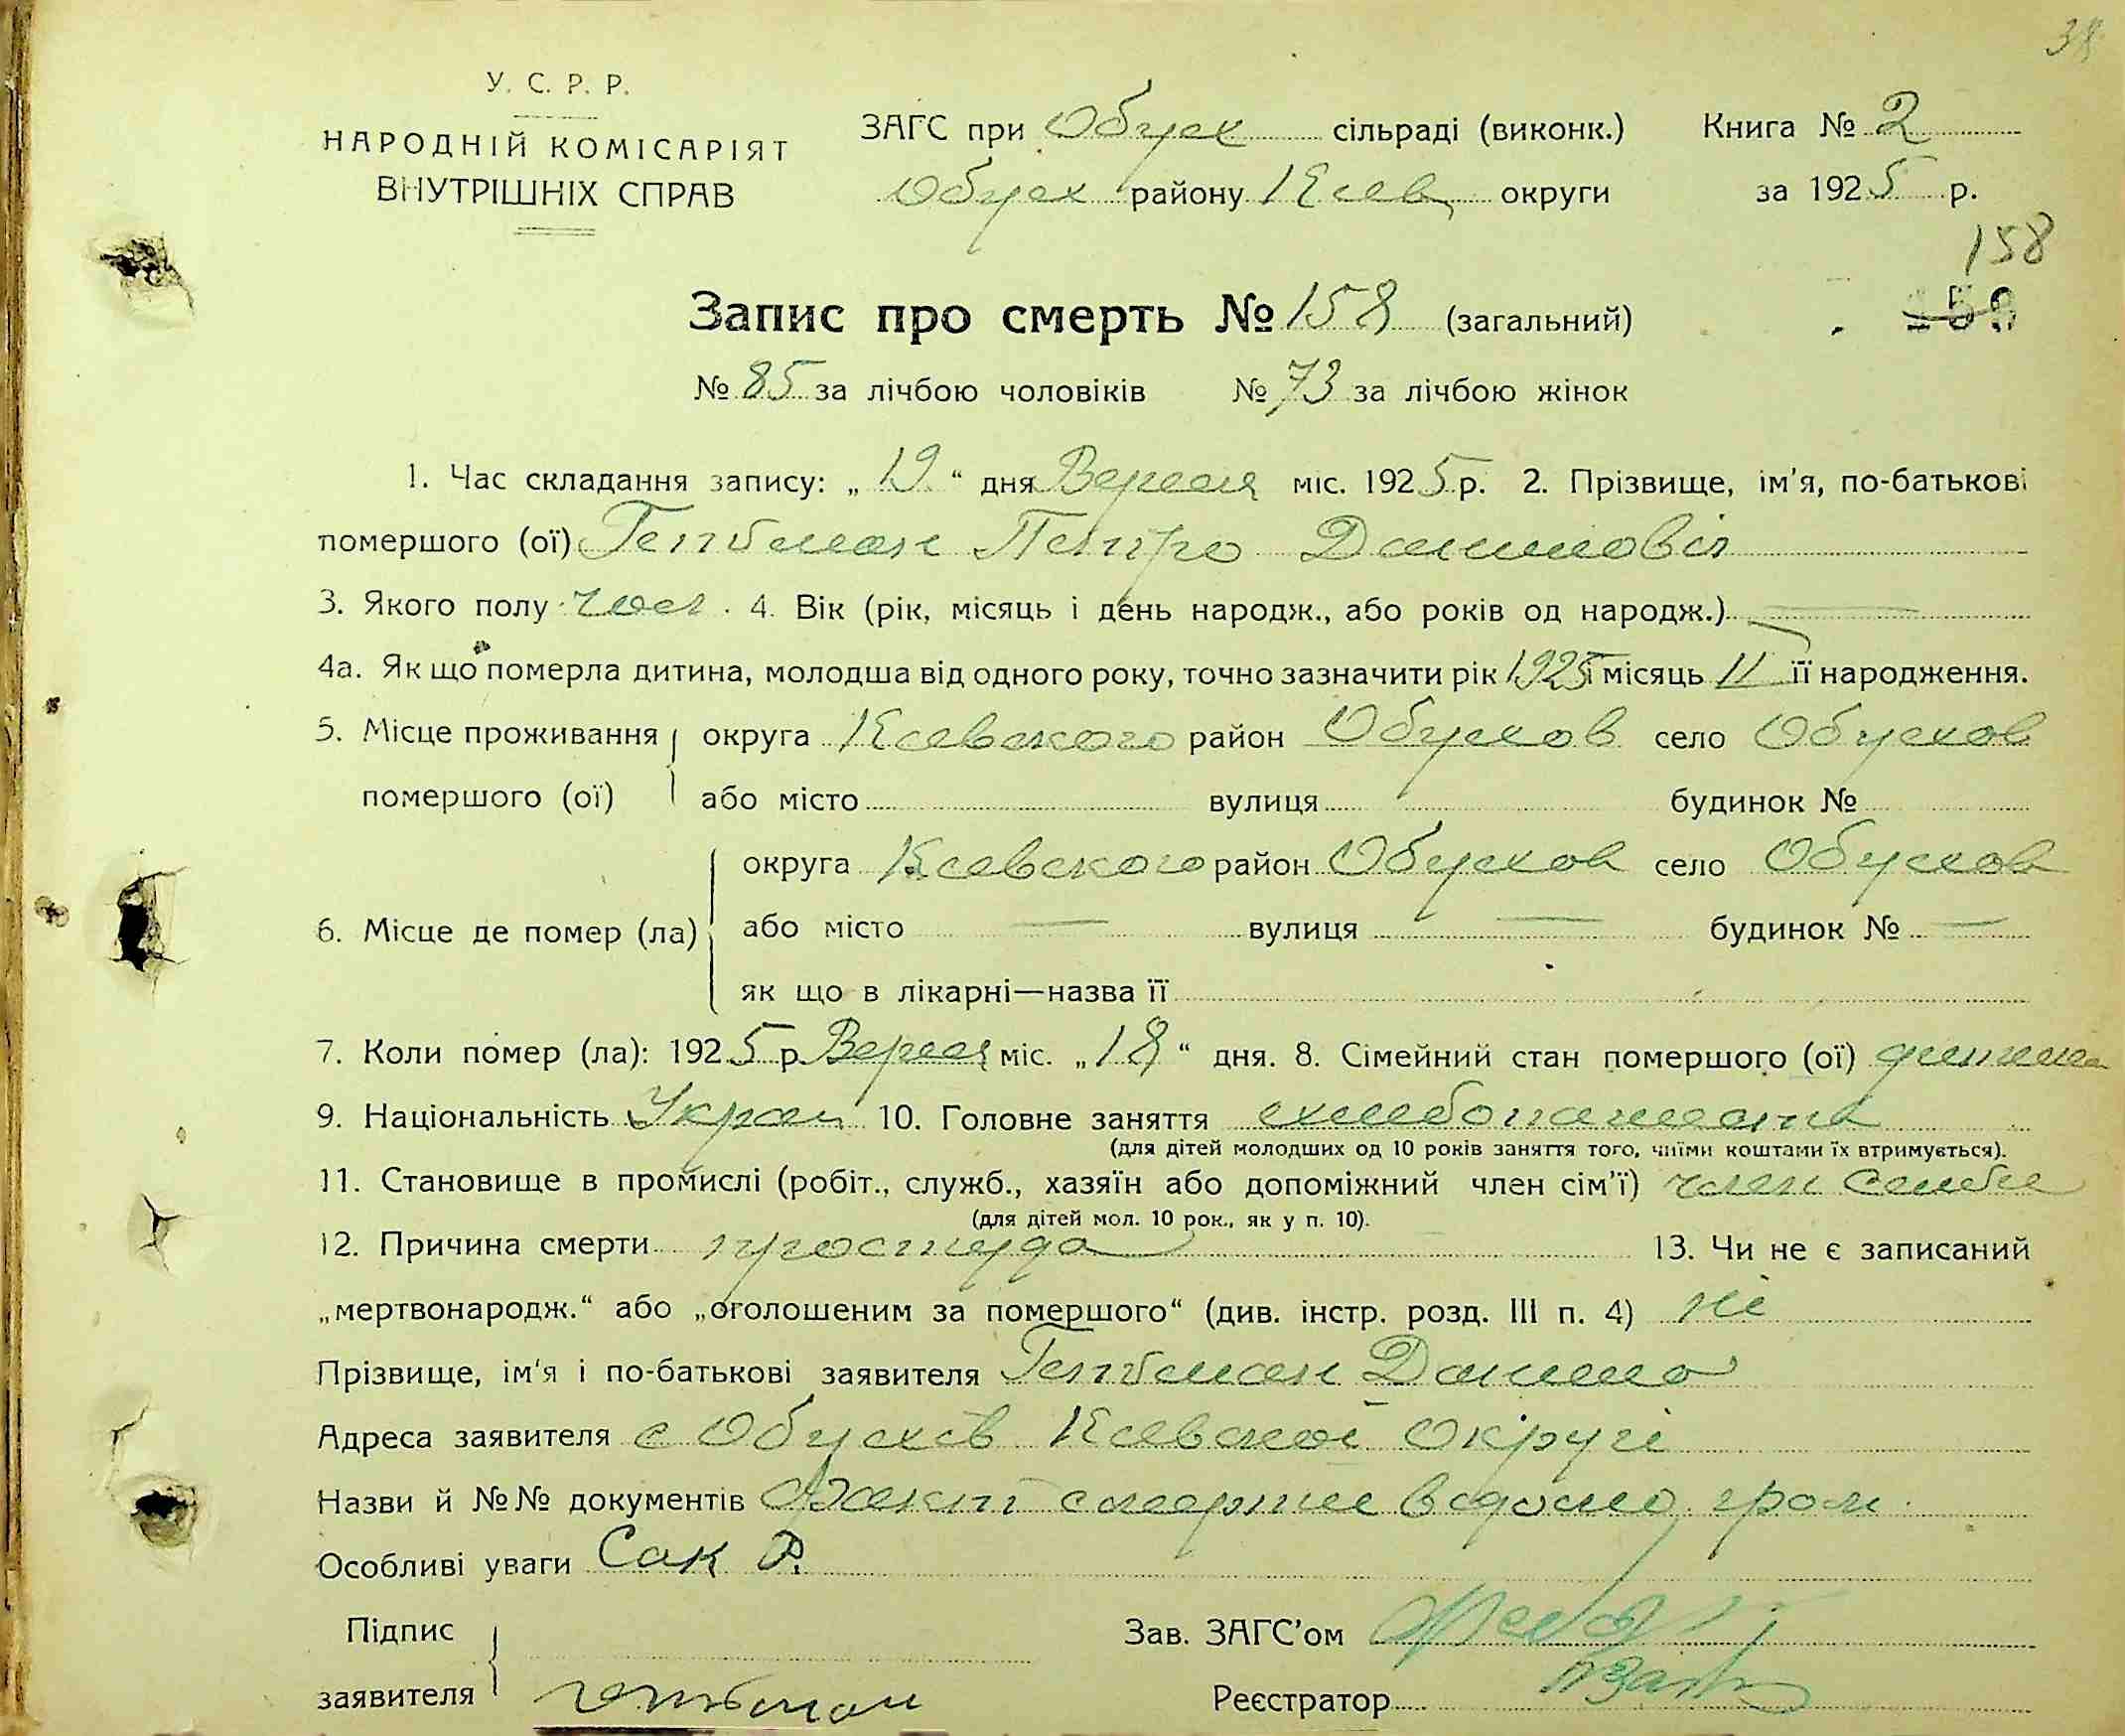 38
У. С. Р. Р.
НАРОДНІЙ КОМІСАРІЯТ
ВНУТРІШНІХ СПРАВ
ЗАГС при Обух сільраді (виконк.)
Обух району Київ округи
Книга № 2
за 1925 р.
158
Запис про смерть № 158 (загальний)
№ 85 за лічбою чоловіків № 73 за лічбою жінок
1. Час складання запису: „ 19 “ дня Вересня міс. 1925 р. 2. Прізвище, ім'я, по-батькові
помершого (ої) Гетьман Петро Данилович
3. Якого полу чол. 4. Вік (рік, місяць і день народж., або років од народж.) —
4а. Як що померла дитина, молодша від одного року, точно зазначити рік 1925 і місяць II її народження.
5. Місце проживання округа Киевського район Обухов село Обухов
помершого (ої) або місто вулиця будинок №
округа Киевського район Обухов село Обухов
6. Місце де помер (ла) або місто — вулиця — будинок № —
як що в лікарні—назва її
7. Коли помер (ла): 1925 р. Вересня міс. „ 18 “ дня. 8. Сімейний стан помершого (ої) дитина
9. Національність Украї 10. Головне заняття хлебопашест
(для дітей молодших од 10 років заняття того, чиїми коштами їх втримується).
11. Становище в промислі (робіт., служб., хазяїн або допоміжний член сім'ї) член Семьи
(для дітей мол. 10 рок., як у п. 10).
12. Причина смерти простуда 13. Чи не є записаний
„мертвонародж.“ або „оголошеним за помершого“ (див. інстр. розд. III п. 4) ні
Прізвище, ім'я і по-батькові заявителя Гетьман Данило
Адреса заявителя с Обухів Киевскої Округі
Назви й №№ документів Факт смерти відомо гром.
Особливі уваги Сак Р.
Підпис
заявителя гетьман
Зав. ЗАГС'ом
Реєстратор